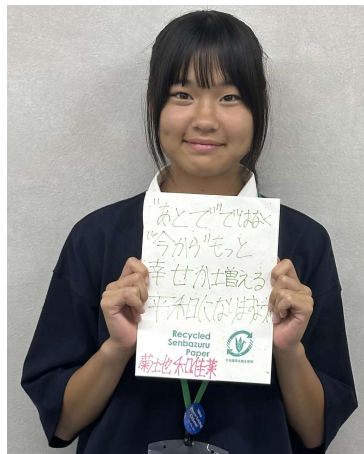 "あとで"ではなく
"今から"もっと
幸せが増える
平和になりますように
Recycled
Senbazuru
Paper
菊地 和佳菜